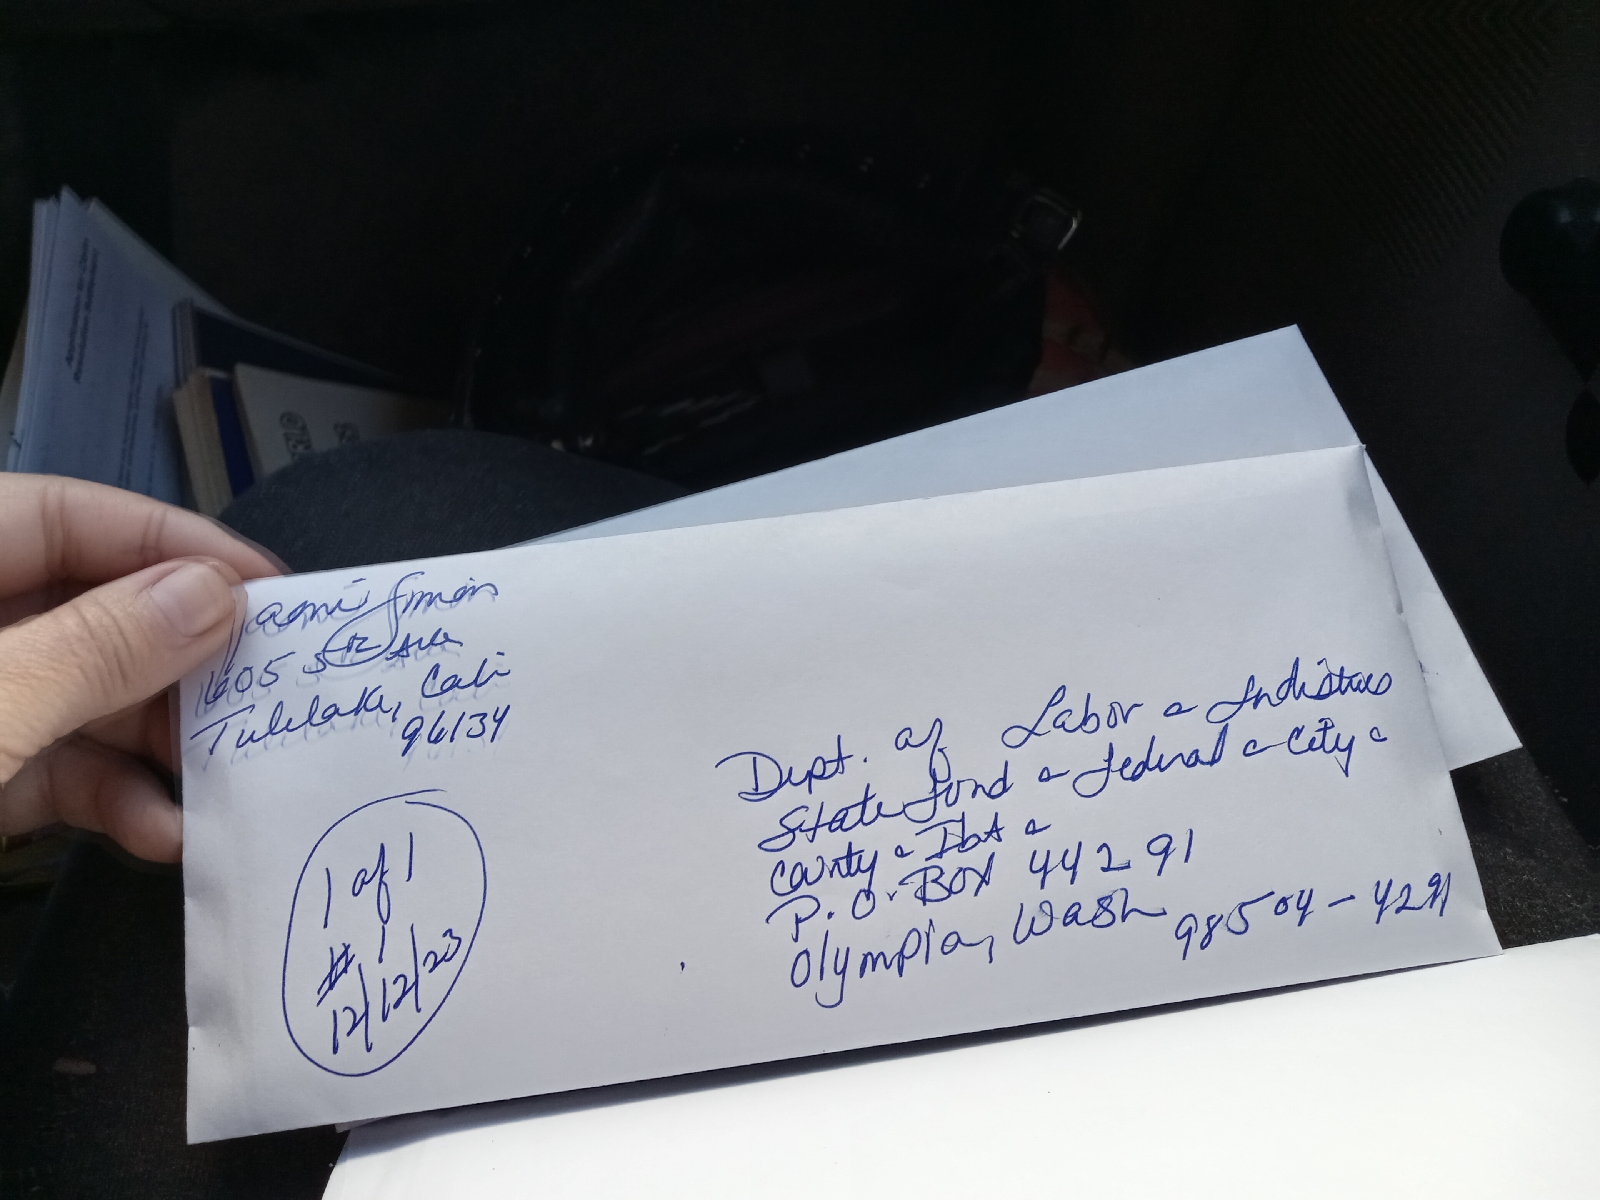 Simon
1605 Ave
Tulelake, Cali
96134
Dept. of Labor & Industries
State Fund & Federal & City &
County &
P.O. BOX 44291
Olympia, Wash 98504-4291
1 of 1
# 1
12/12/23